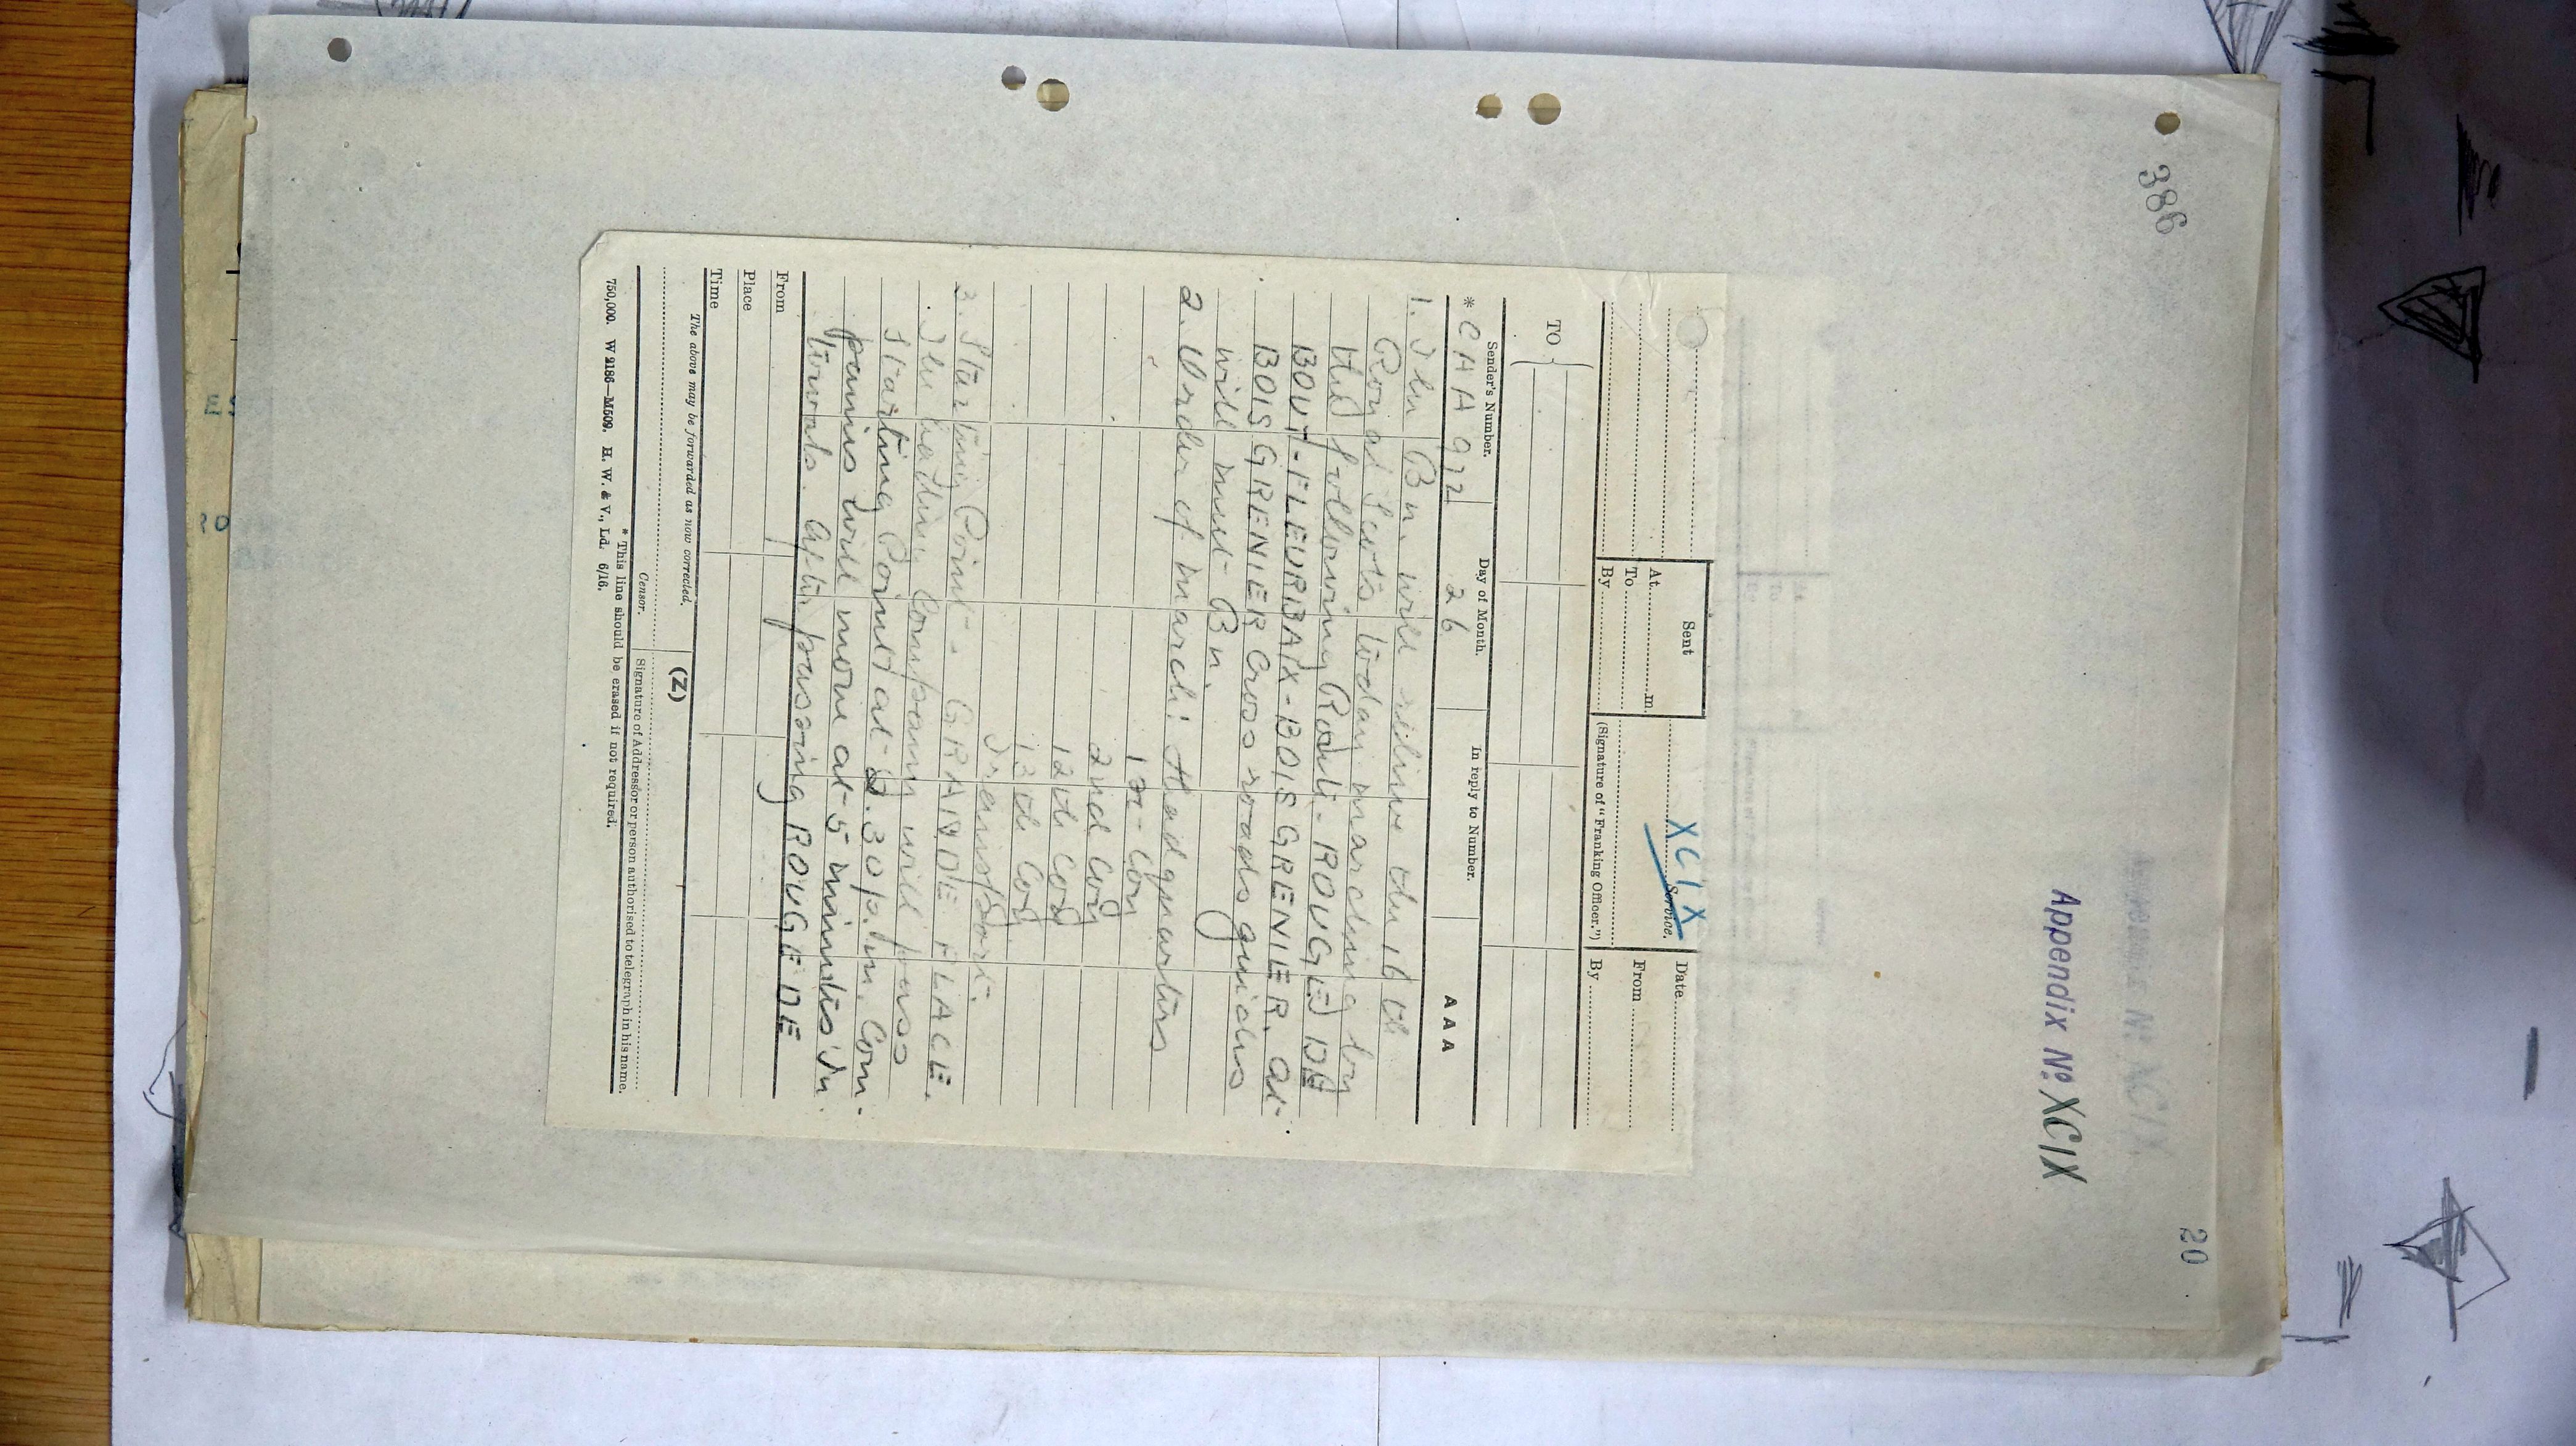 386
20
Appendix Nº XCIX
XCIX
Sent
At m.
To
By
Service.
(Signature of "Franking Officer.")
Date
From
By
TO
Sender's Number.
Day of Month.
In reply to Number.
AAA
* CAA 972
26
1. The Bn. will relieve the 16th
Royal Scots today marching by
the following Route - ROUGE DE
BOUT-FLEURBAIX-BOIS GRENIER. At
BOIS GRENIER Cross roads guides
will meet Bn.
2. Order of march: Headquarters
1st Coy
2nd Coy
12th Coy
13th Coy
Transport.
3. Starting Point - GRANDE PLACE.
The leading Company will pass
Starting Point at 2.30 p.m. Com-
panies will move at 5 minutes in-
tervals. After passing ROUGE DE
From
Place
Time
The above may be forwarded as now corrected.
(Z)
Censor.
Signature of Addressor or person authorised to telegraph in his name.
* This line should be erased if not required.
750,000. W 2186—M509. H. W. & V., Ld. 6/16.